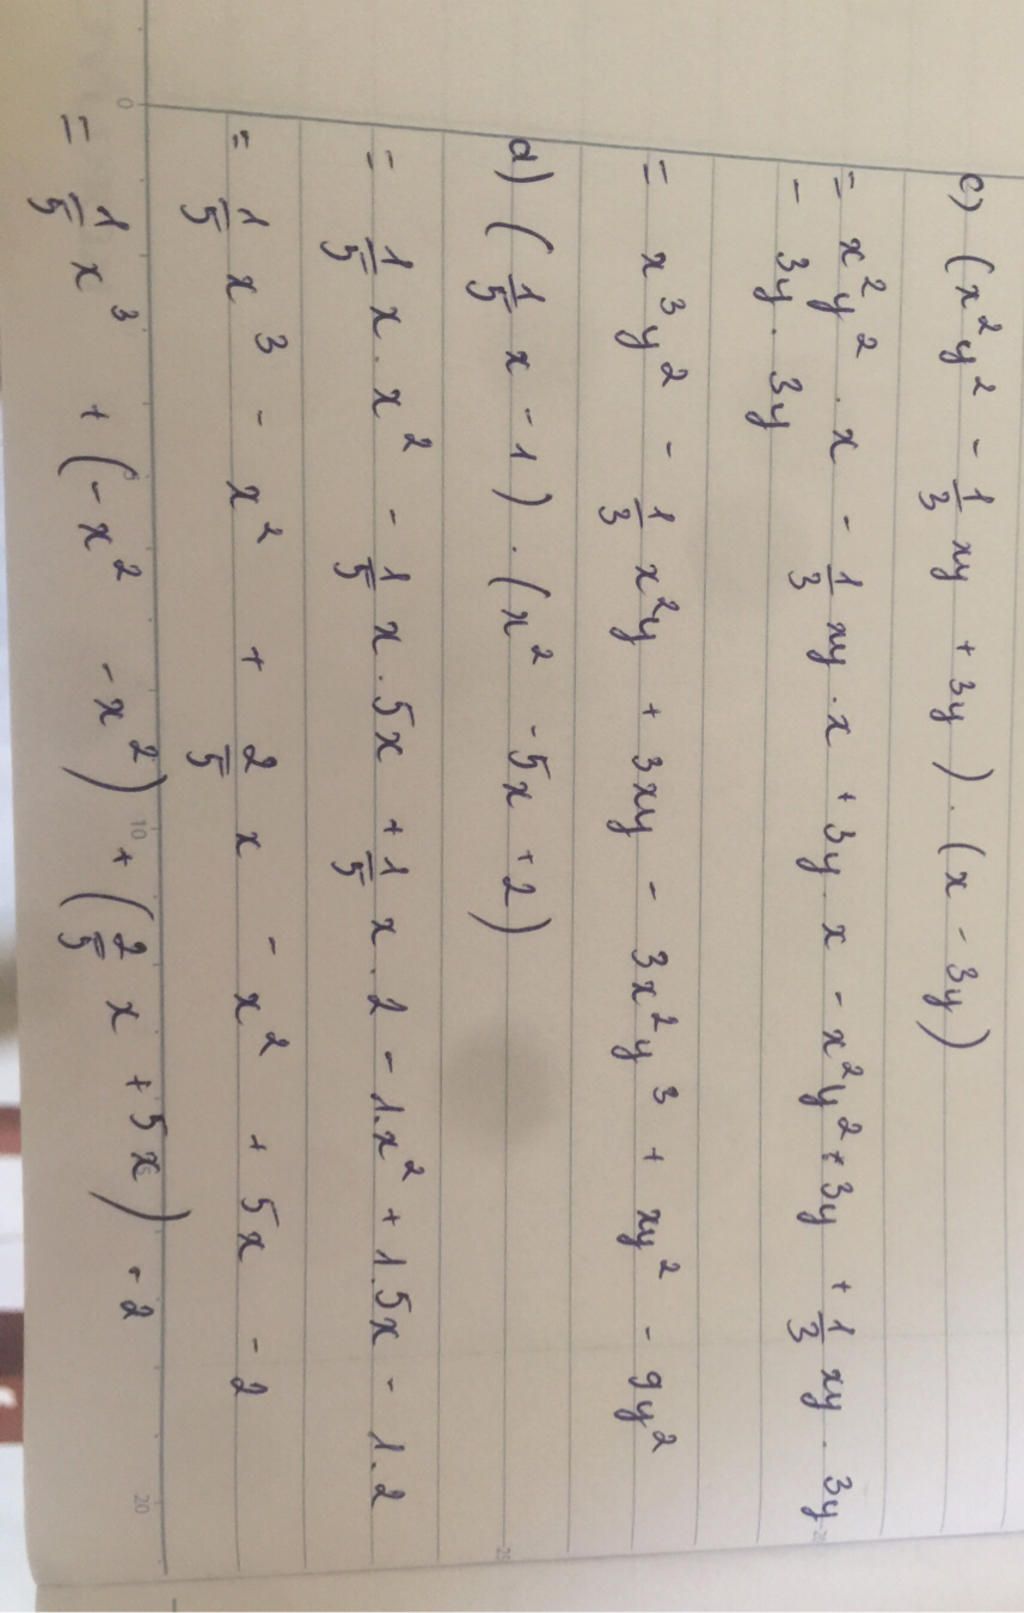 c) (x²y² - 1/3 xy + 3y) . (x - 3y)
= x²y² . x - 1/3 xy . x + 3y . x - x²y² . 3y + 1/3 xy . 3y
- 3y . 3y
= x³y² - 1/3 x²y + 3xy - 3x²y³ + xy² - 9y²
d) (1/5 x - 1) . (x² - 5x + 2)
= 1/5 x . x² - 1/5 x . 5x + 1/5 x . 2 - 1.x² + 1.5x - 1.2
= 1/5 x³ - x² + 2/5 x - x² + 5x - 2
= 1/5 x³ + (- x² - x²) + (2/5 x + 5x) - 2
0
10
20